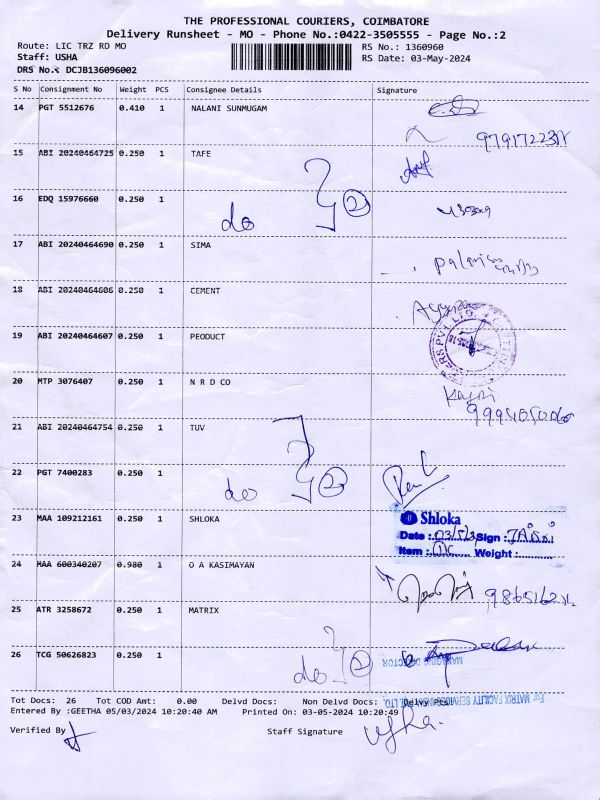 THE PROFESSIONAL COURIERS, COIMBATORE
Delivery Runsheet - MO - Phone No.:0422-3505555 - Page No.:2
Route: LIC TRZ RD MO RS No.: 1360960
Staff: USHA RS Date: 03-May-2024
DRS No.: DCJB136096002
S No Consignment No Weight PCS Consignee Details Signature
14 PGT 5512676 0.410 1 NALANI SUNMUGAM
15 ABI 20240464725 0.250 1 TAFE
16 EDQ 15976660 0.250 1 do
17 ABI 20240464690 0.250 1 SIMA
18 ABI 20240464606 0.250 1 CEMENT
19 ABI 20240464607 0.250 1 PEODUCT
20 MTP 3076407 0.250 1 N R D CO
21 ABI 20240464754 0.250 1 TUV
22 PGT 7400283 0.250 1 do
23 MAA 109212161 0.250 1 SHLOKA
Shloka
Date : 03/5/ Sign :
Item : Weight:
24 MAA 600340207 0.980 1 O A KASIMAYAN
25 ATR 3258672 0.250 1 MATRIX
26 TCG 50626823 0.250 1 do
MANAGING DIRECTOR
For MATRIX FACILITY SERVICES
Tot Docs: 26 Tot COD Amt: 0.00 Delvd Docs: Non Delvd Docs:
Entered By :GEETHA 05/03/2024 10:20:40 AM Printed On: 03-05-2024 10:20:49
Verified By Staff Signature Usha.